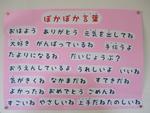 ぽかぽか言葉
おはよう ありがとう 元気を出してね
大好き がんばっているね 手伝うよ
たよりになるね だいじょうぶ？
おうえんしているよ うれしいよ いいね
気がきくね なかまだね すてきだね
よかったね おめでとう ごめんね
すごいね やさしいね 上手だねたのしいね